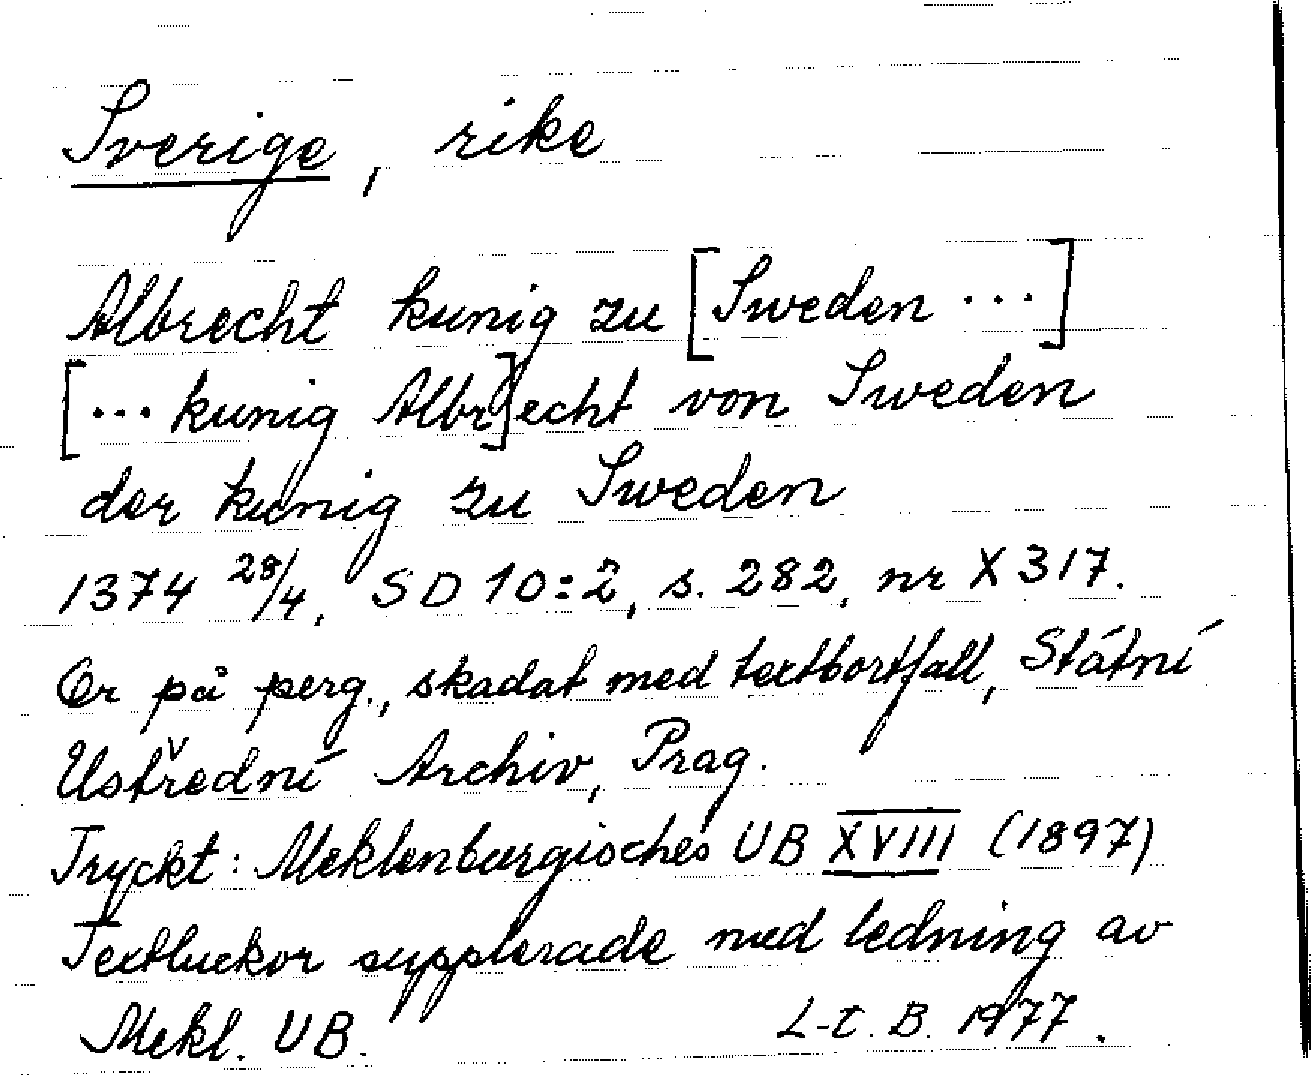 Sverige, rike
Albrecht kunig zu [Sweden ...]
[... kunig Albr]echt von Sweden
der kunig zu Sweden
1374 28/4, SD 10:2, s. 282, nr X 317.
Or på perg., skadat med textbortfall, Státní
Ustřední Archiv, Prag.
Tryckt: Meklenburgisches UB XVIII (1897)
Textluckor supplerade med ledning av
Mekl. UB. L-t. B. 1977.